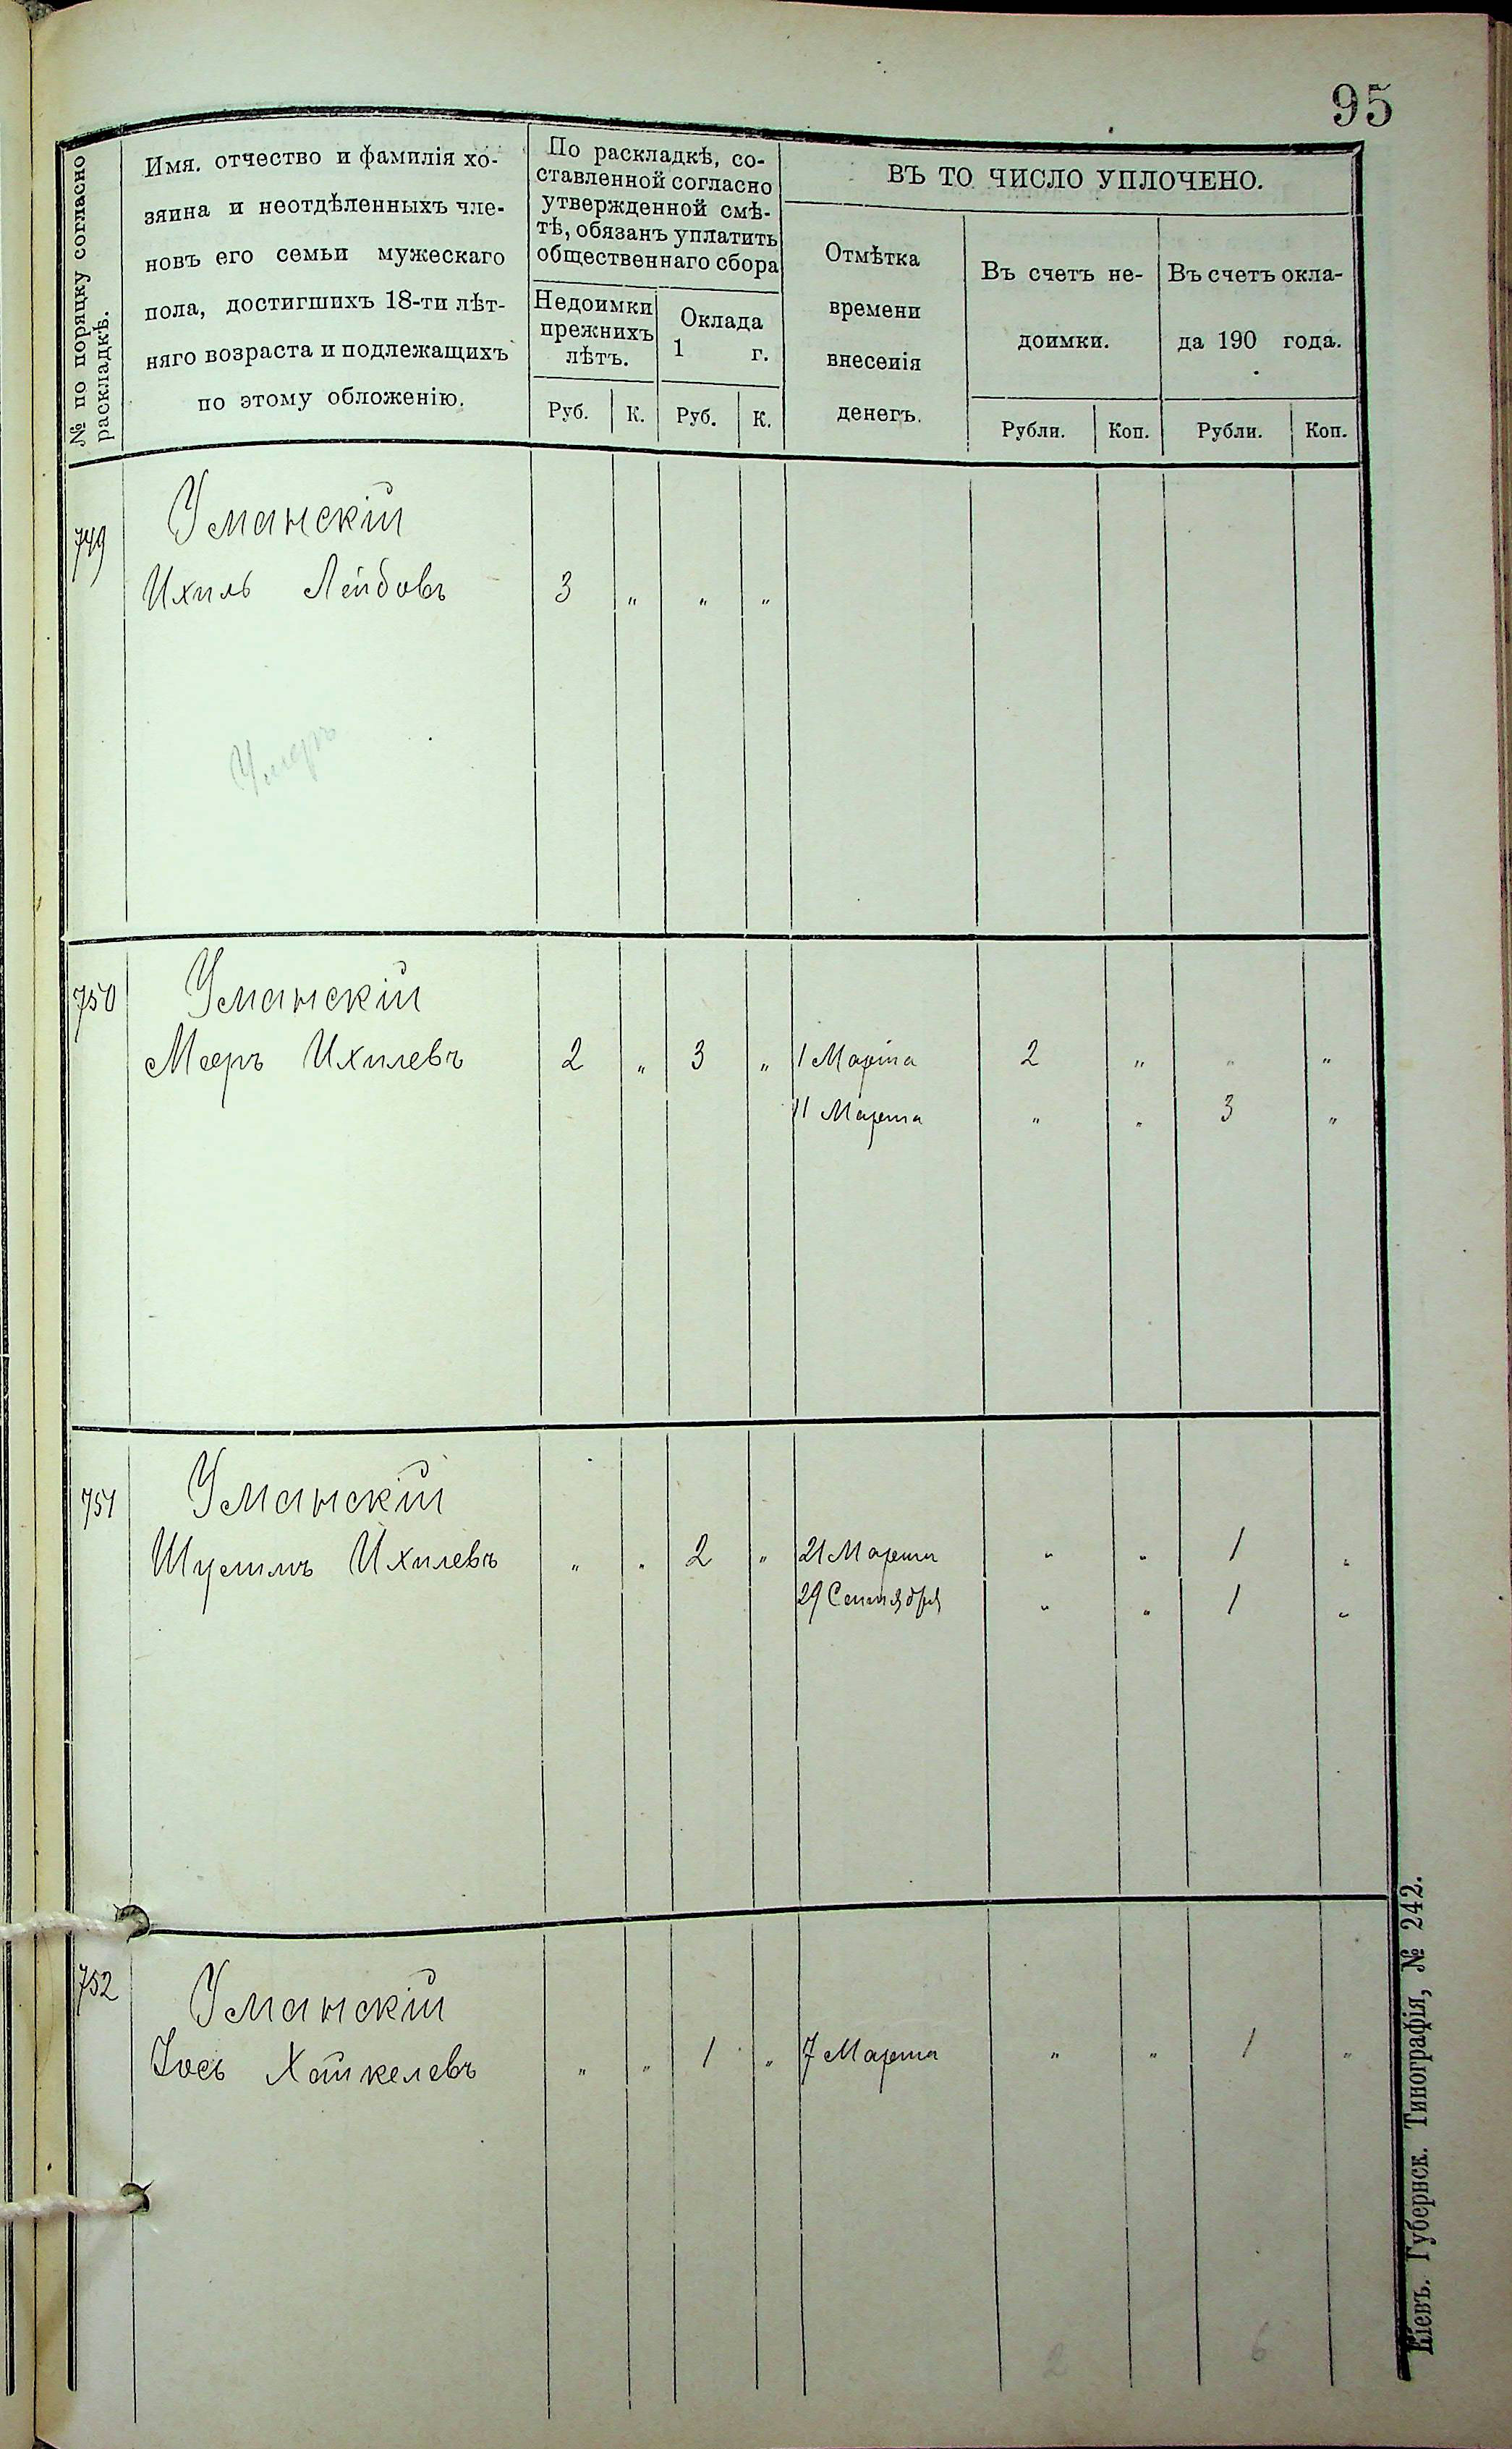 95
№ по порядку согласно
раскладкѣ.
Имя. отчество и фамилія хо-
зяина и неотдѣленныхъ чле-
новъ его семьи мужескаго
пола, достигшихъ 18-ти лѣт-
няго возраста и подлежащихъ
по этому обложенію.
По раскладкѣ, со-
ставленной согласно
утвержденной смѣ-
тѣ, обязанъ уплатить
общественнаго сбора
Недоимки
прежнихъ
лѣтъ.
Оклада
1 г.
Руб. К. Руб. К.
ВЪ ТО ЧИСЛО УПЛОЧЕНО.
Отмѣтка
времени
внесенія
денегъ.
Въ счетъ не-
доимки.
Въ счетъ окла-
да 190 года.
Рубли. Коп. Рубли. Коп.
749 Уманскій
Ихиль Лейбовъ 3 „ „ „
Умеръ
750 Уманскій
Мееръ Ихилевъ 2 „ 3 „ 1 Марта 2 „ „ „
11 Марта „ „ 3 „
751 Уманскій
Шулимъ Ихилевъ „ „ 2 „ 21 Марта „ „ 1 „
29 Сентября „ „ 1 „
752 Уманскій
Іось Хаикелевъ „ „ 1 „ 7 Марта „ „ 1 „
2 6
Кіевъ. Губернск. Типографія, № 242.